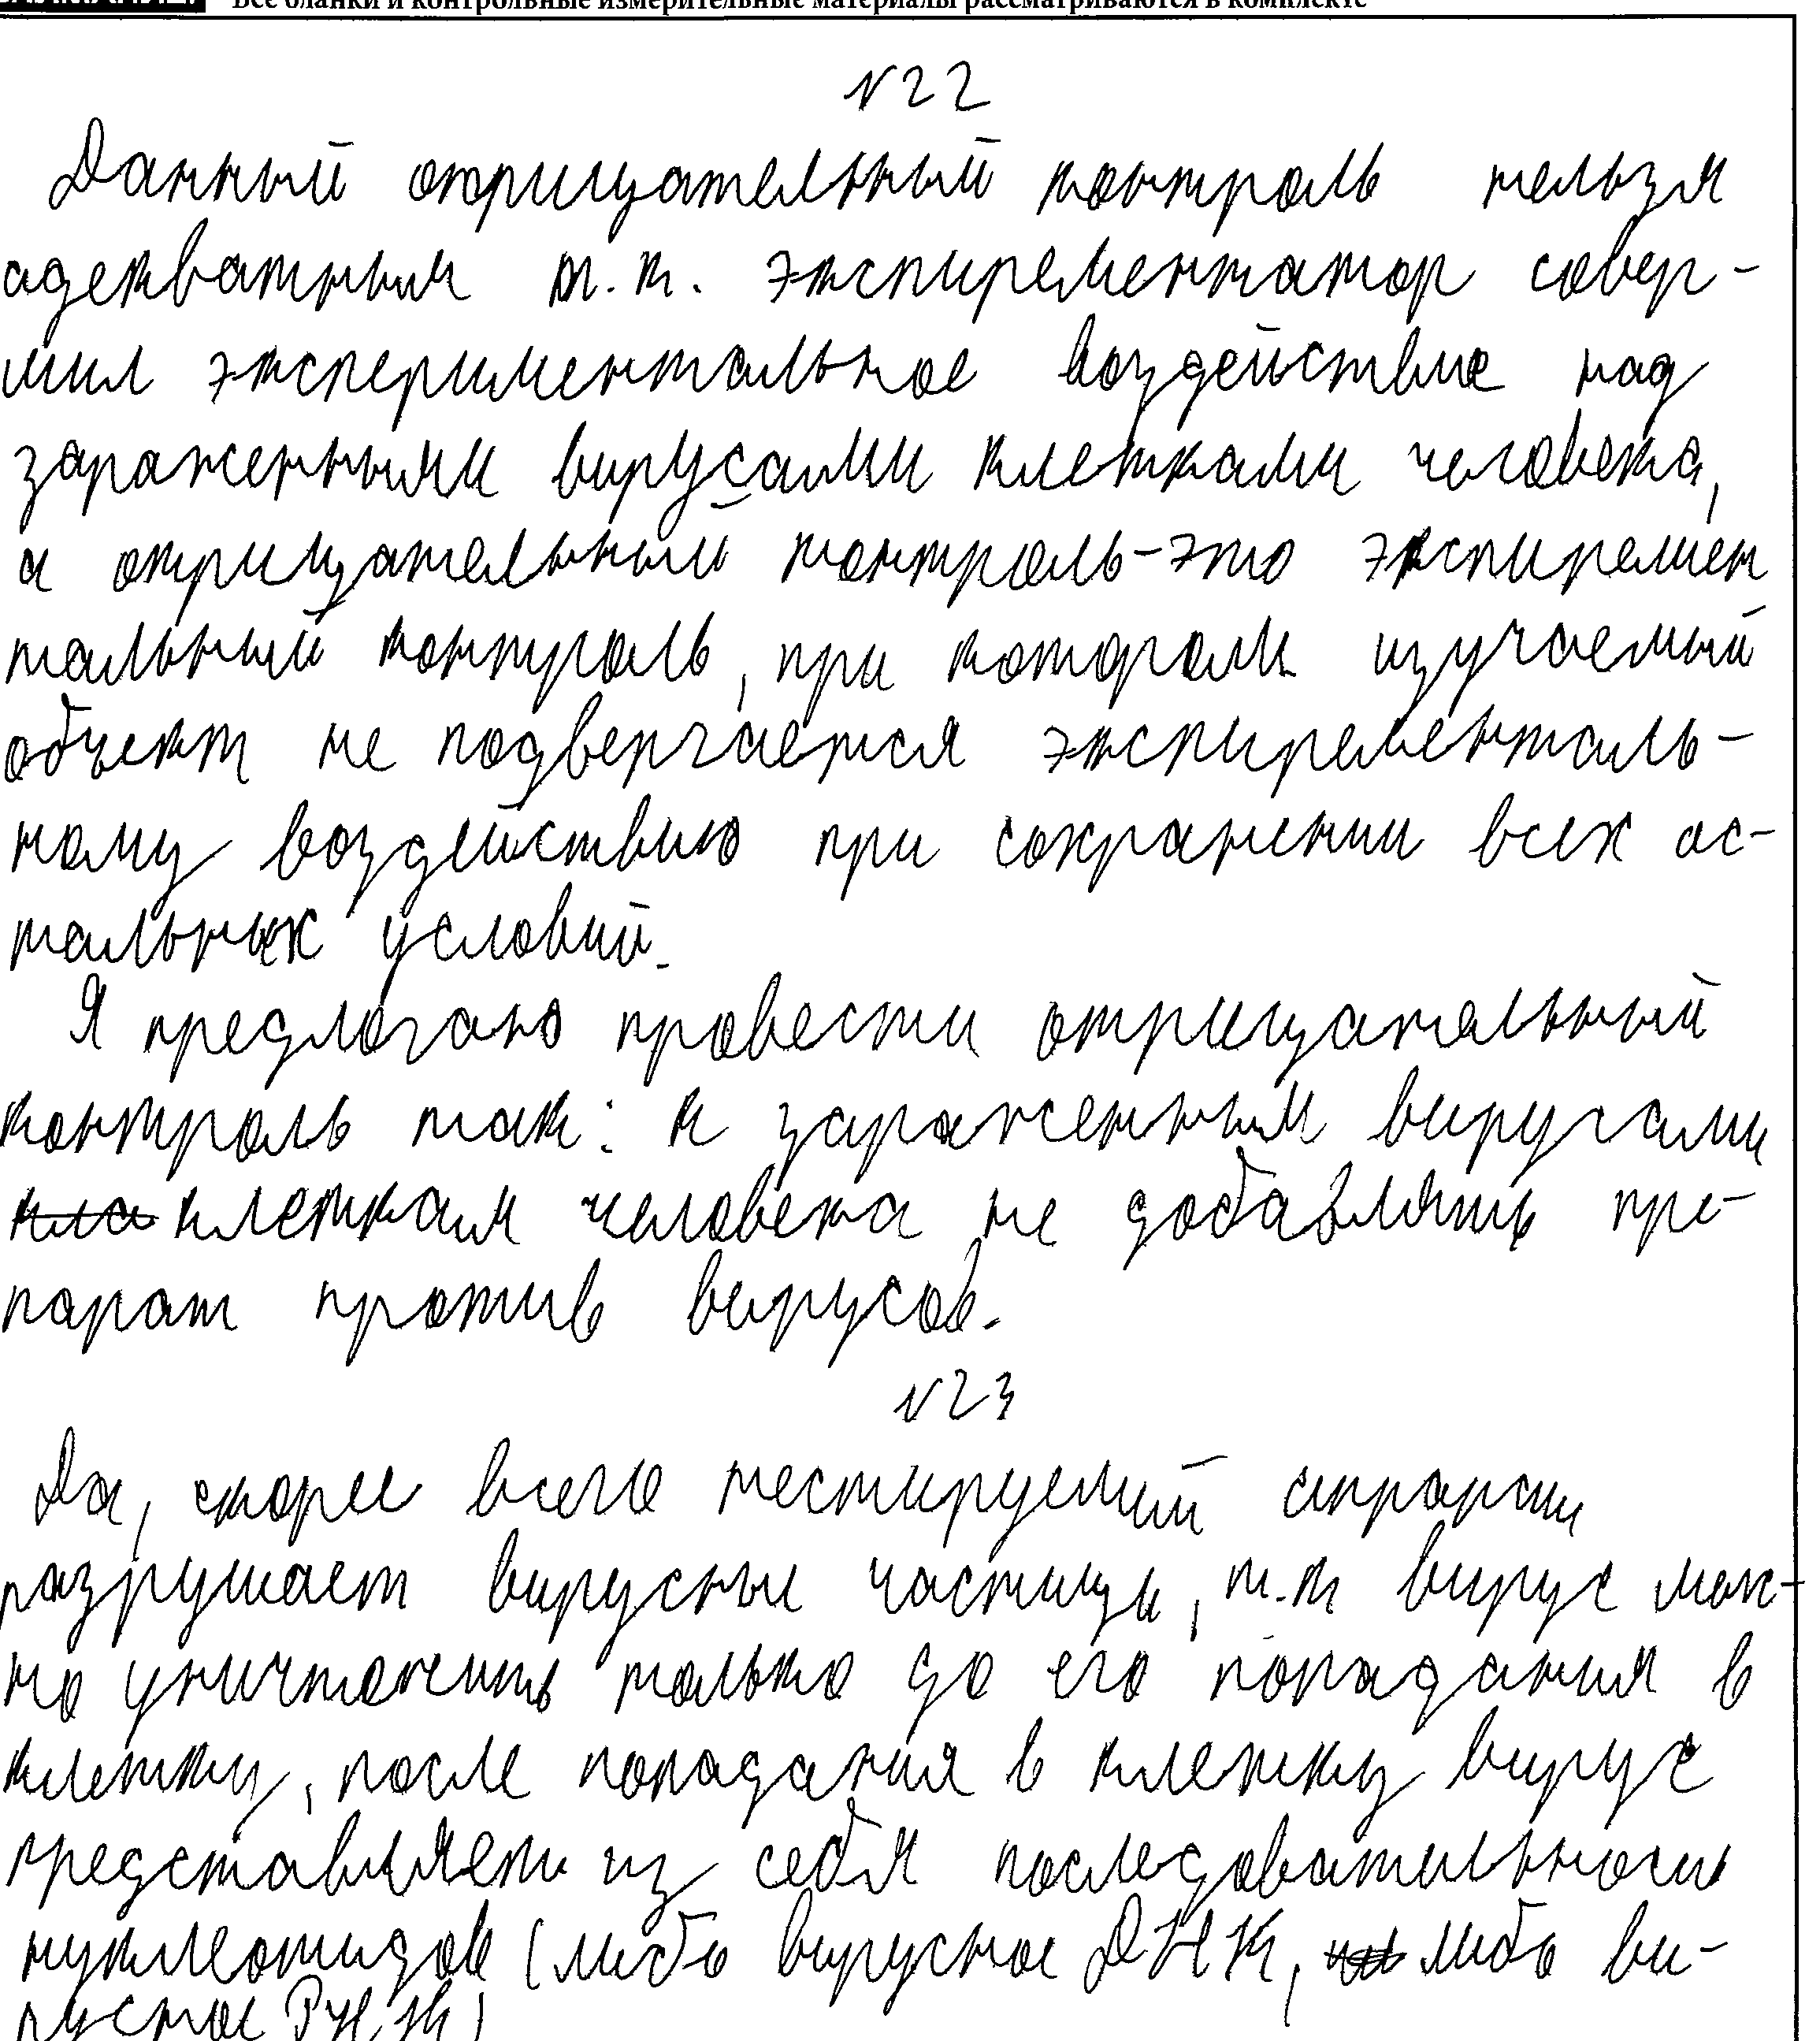 Все бланки и контрольные измерительные материалы рассматриваются в комплекте
№22
Данный отрицательный контроль нельзя
адекватным т.к. экспирементатор совер-
шил экспериментальное воздействие над
зараженными вирусами клетками человека,
а отрицательный контроль-это экспиремен
тальный контроль, при котором изучаемый
объект не подвергается экспиременталь-
ному воздействию при сохранении всех ос-
тальных условий.
Я предлогаю провести отрицательный
контроль так: к зараженным вирусами
клеткам человека не добавлять пре-
парат против вирусов.
№23
Да, скорее всего тестируемый
разрушает вирусны частицы, т.к вирус мож-
но уничтожить только до его попадания в
клетку, после попадания в клетку вирус
представляет из себя последовательность
нуклеотидов (либо вирусное ДНК, либо ви-
русное РНК)